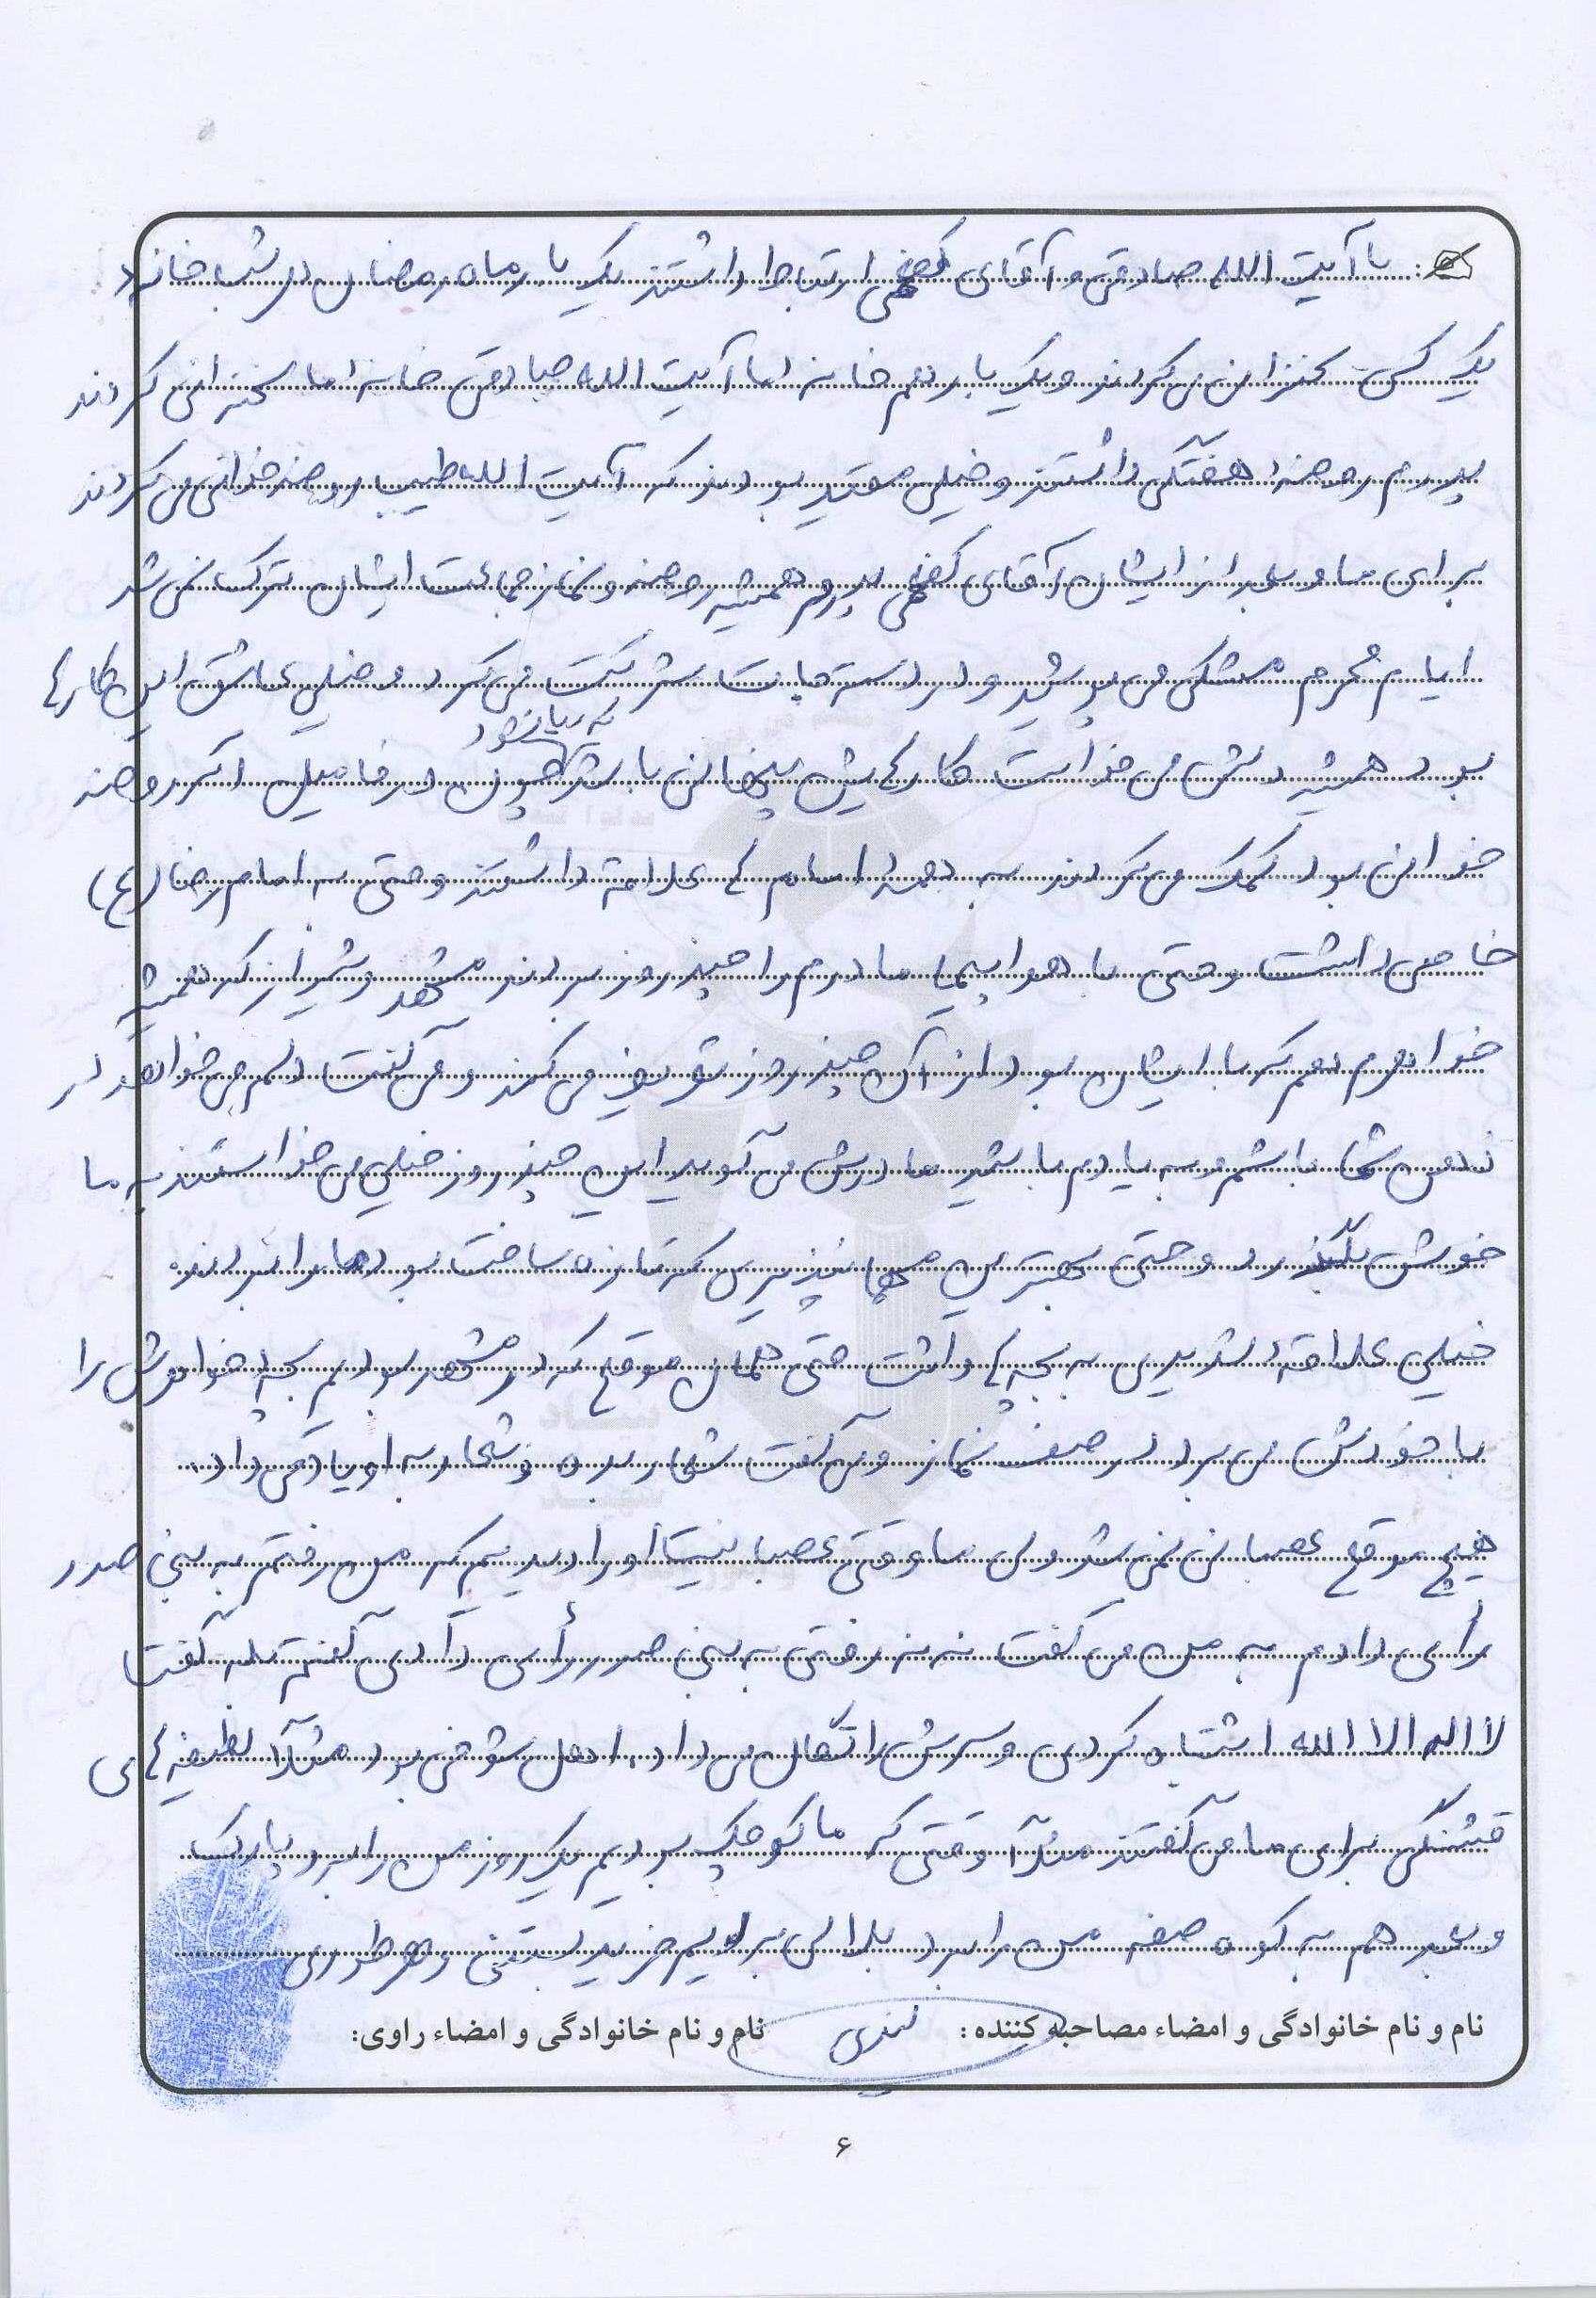 : با آیت الله صادقی و آقای ارتباط داشتند یک بار ماه رمضان در شب خانه
یک کسی سخنرانی می کردند و یک بار دهم خانه اما آیت الله صادقی خانه ما سخنرانی کردند
پدرم روضه هفتگی داشتند و خیلی مقید بودند که آیت الله طیب روضه خوانی می کردند
برای ما و بعد از ایشان آقای پدرم همیشه روضه و نماز جماعت ایشان ترک نمی شد
ایام محرم مشکی می پوشید و در دستجات شرکت می کرد و خیلی عاشق این کارها
بود همیشه دلش می خواست کارهایش پنهانی باشد که ریا نشود چون در فامیل اگر روضه
خوانی بود کمک می کردند به همه امام ها علاقه داشتند و حتی به امام رضا (ع)
خاصی داشت و حتی با هواپیما مادرم را چند روز بردند مشهد و شیراز که همیشه
خواهرم هم که با ایشان بود از آن چند روز تعریف می کند و می گفت دلم می خواهد در
ذهن شما باشم و به یادم باشید مادرش می گوید این چند روز خیلی می خواستند به ما
خوش بگذرد و حتی بهترین مهمانپذیری که تازه ساخت بود ما را بردند
خیلی علاقه شدیدی به بچه ها داشت حتی همان موقع که در مشهد بودیم بچه خواهرش را
با خودش می برد در صف نماز و می گفت شعار بده و شعار به او یاد می داد.
هیچ موقع عصبانی نمی شد ولی ما وقتی عصبانیت او را دیدیم که من رفتم به بنی صدر
رأی دادم به من می گفت نه نه رفتی به بنی صدر رأی دادی گفتم بله گفت
لا اله الا الله اشتباه کردی و سرش را تکان می داد. اهل شوخی بود مثلاً لطیفه های
قشنگی برای ما می گفتند مثلاً وقتی که ما کوچک بودیم یک روز من را برد پارک
و بعد هم به کوه صفه من را برد بلالی برایم خرید بستنی و هر طوری
نام و نام خانوادگی و امضاء مصاحبه کننده: نام و نام خانوادگی و امضاء راوی:
۶